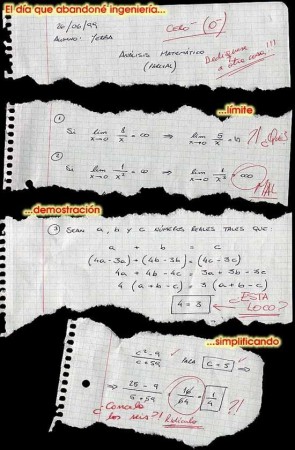 El día que abandoné ingeniería...
26/06/99
Cero- (0)
Alumno: Yerba
Análisis Matemático
(Parcial)
Dedíquese
a otra cosa!!!
...límite
① Si lim x→0 8/x = ∞ ⇒ lim x→0 5/x = ?! ¿Qué?
② Si lim x→0 1/x² = ∞ ⇒ lim x→0 1/x³ = ∞
MAL
...demostración
③ Sean a, b y c números reales tales que:
a + b = c
(4a-3a) + (4b-3b) = (4c-3c)
4a + 4b - 4c = 3a + 3b - 3c
4 (a+b-c) = 3 (a+b-c)
4 = 3
¿ESTÁ LOCO?
...simplificando
c²-9 / c+59 para c = 5 ⇒
⇒ 25-9 / 5+59 = 16/64 = 1/4 ?!
¿Cancela
los seis?!
Ridículo